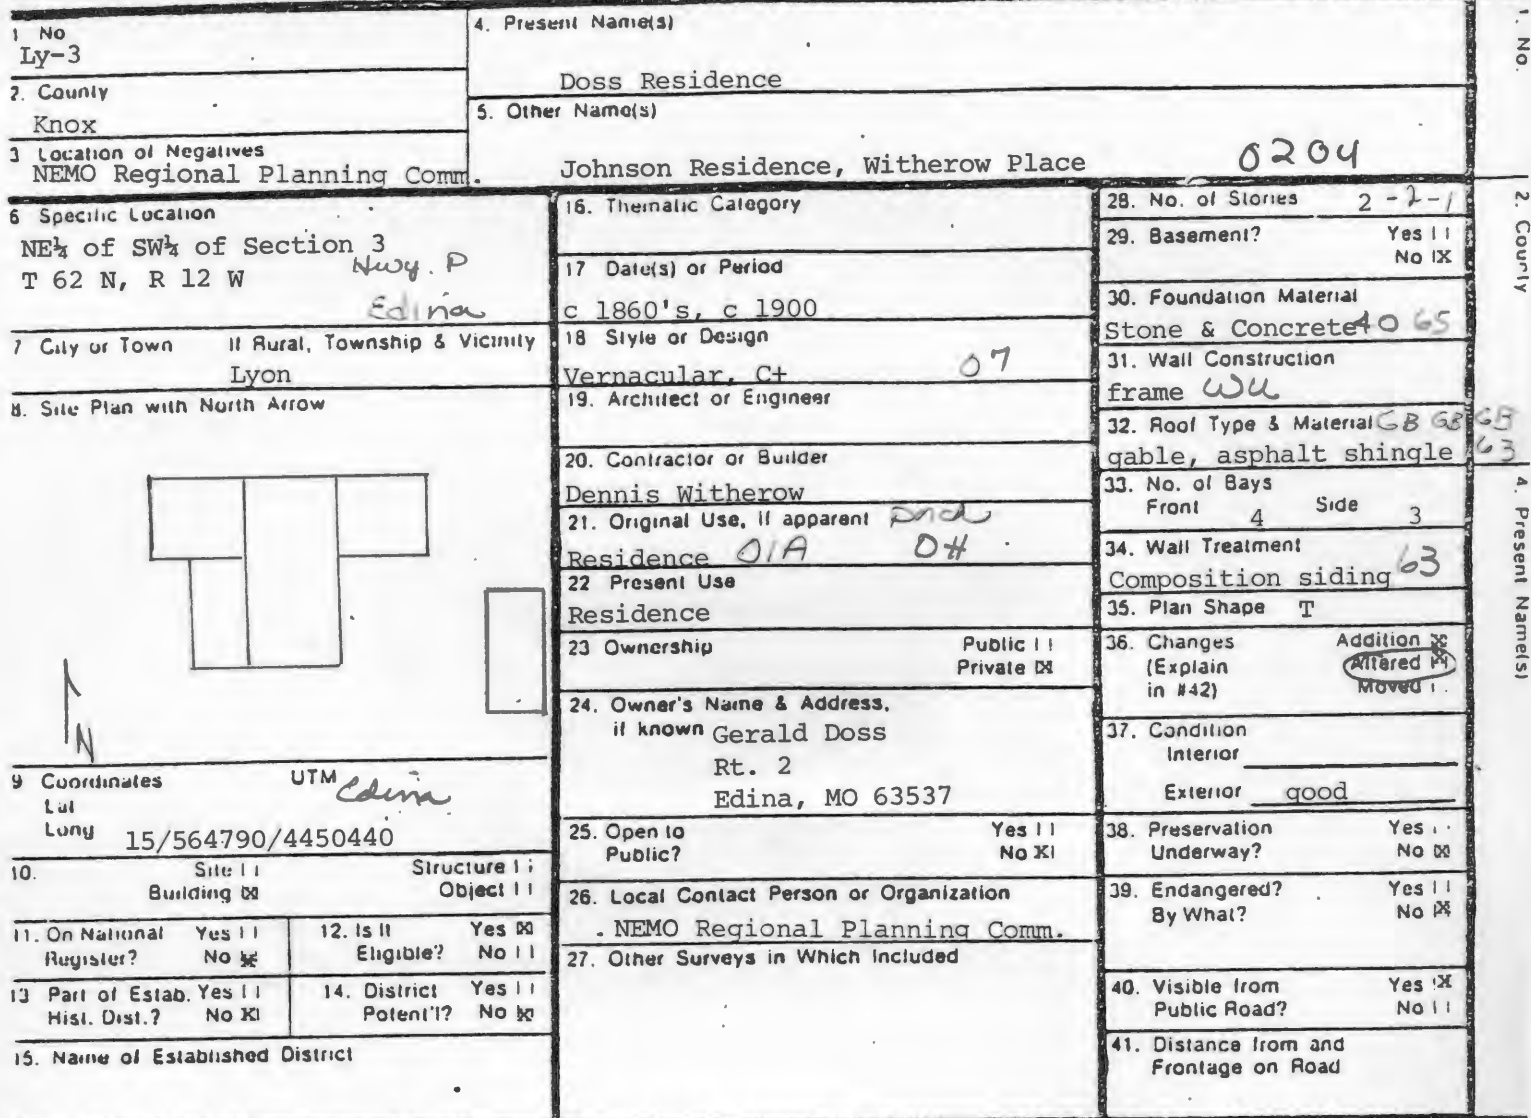 1 No
Ly-3
2. County
Knox
3 Location of Negatives
NEMO Regional Planning Comm.
4. Present Name(s)
Doss Residence
5. Other Name(s)
Johnson Residence, Witherow Place
0204
6 Specific Location
NE¼ of SW¼ of Section 3
Hwy. P
T 62 N, R 12 W
Edina
7 City or Town If Rural, Township & Vicinity
Lyon
8. Site Plan with North Arrow
N
9 Coordinates UTM Edina
Lat
Long 15/564790/4450440
10. Site [ ] Structure [ ]
Building [X] Object [ ]
11. On National Yes [ ]
Register? No [X]
12. Is It Yes [X]
Eligible? No [ ]
13 Part of Estab. Yes [ ]
Hist. Dist.? No [X]
14. District Yes [ ]
Potent'l? No [X]
15. Name of Established District
16. Thematic Category
17 Date(s) or Period
c 1860's, c 1900
18 Style or Design
Vernacular, C+ 07
19. Architect or Engineer
20. Contractor or Builder
Dennis Witherow
21. Original Use, if apparent
Residence 01A 0H
22 Present Use
Residence
23 Ownership Public [ ]
Private [X]
24. Owner's Name & Address,
if known Gerald Doss
Rt. 2
Edina, MO 63537
25. Open to Yes [ ]
Public? No [X]
26. Local Contact Person or Organization
NEMO Regional Planning Comm.
27. Other Surveys in Which Included
28. No. of Stories 2-2-1
29. Basement? Yes [ ]
No [X]
30. Foundation Material
Stone & Concrete 40 65
31. Wall Construction
frame WU
32. Roof Type & Material GB GB GB
gable, asphalt shingle 63
33. No. of Bays
Front 4 Side 3
34. Wall Treatment
Composition siding 63
35. Plan Shape T
36. Changes Addition [X]
(Explain Altered [X]
in #42) Moved [ ]
37. Condition
Interior
Exterior good
38. Preservation Yes [ ]
Underway? No [X]
39. Endangered? Yes [ ]
By What? No [X]
40. Visible from Yes [X]
Public Road? No [ ]
41. Distance from and
Frontage on Road
1. No.
2. County
4. Present Name(s)